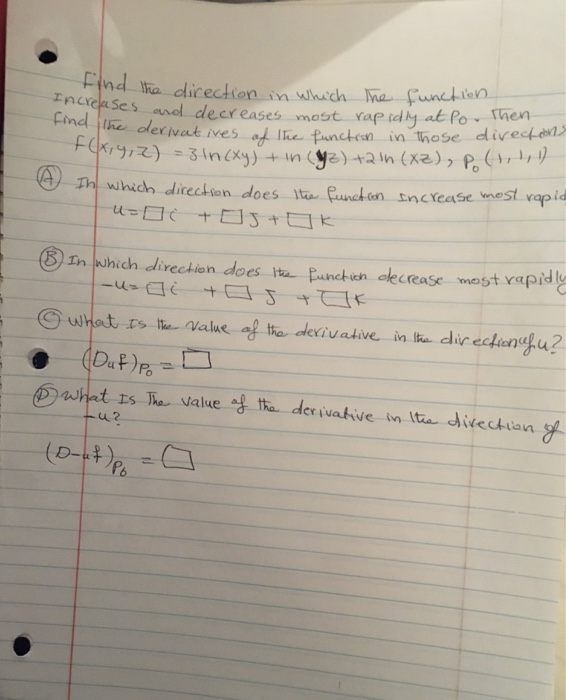 Find the direction in which The function
Increases and decreases most rapidly at P₀. Then
find the derivatives of the function in those directions
f(x,y,z) = 3 ln(xy) + ln(yz) + 2 ln(xz), P₀ (1,1,1)
Ⓐ In which direction does the function increase most rapid
u = □ i + □ j + □ k
Ⓑ In which direction does the function decrease most rapidly
-u = □ i + □ j + □ k
Ⓒ what Is the value of the derivative in the direction of u?
(Duf)P₀ = □
Ⓓ what Is The value of the derivative in the direction of
-u?
(D-uf)P₀ = □